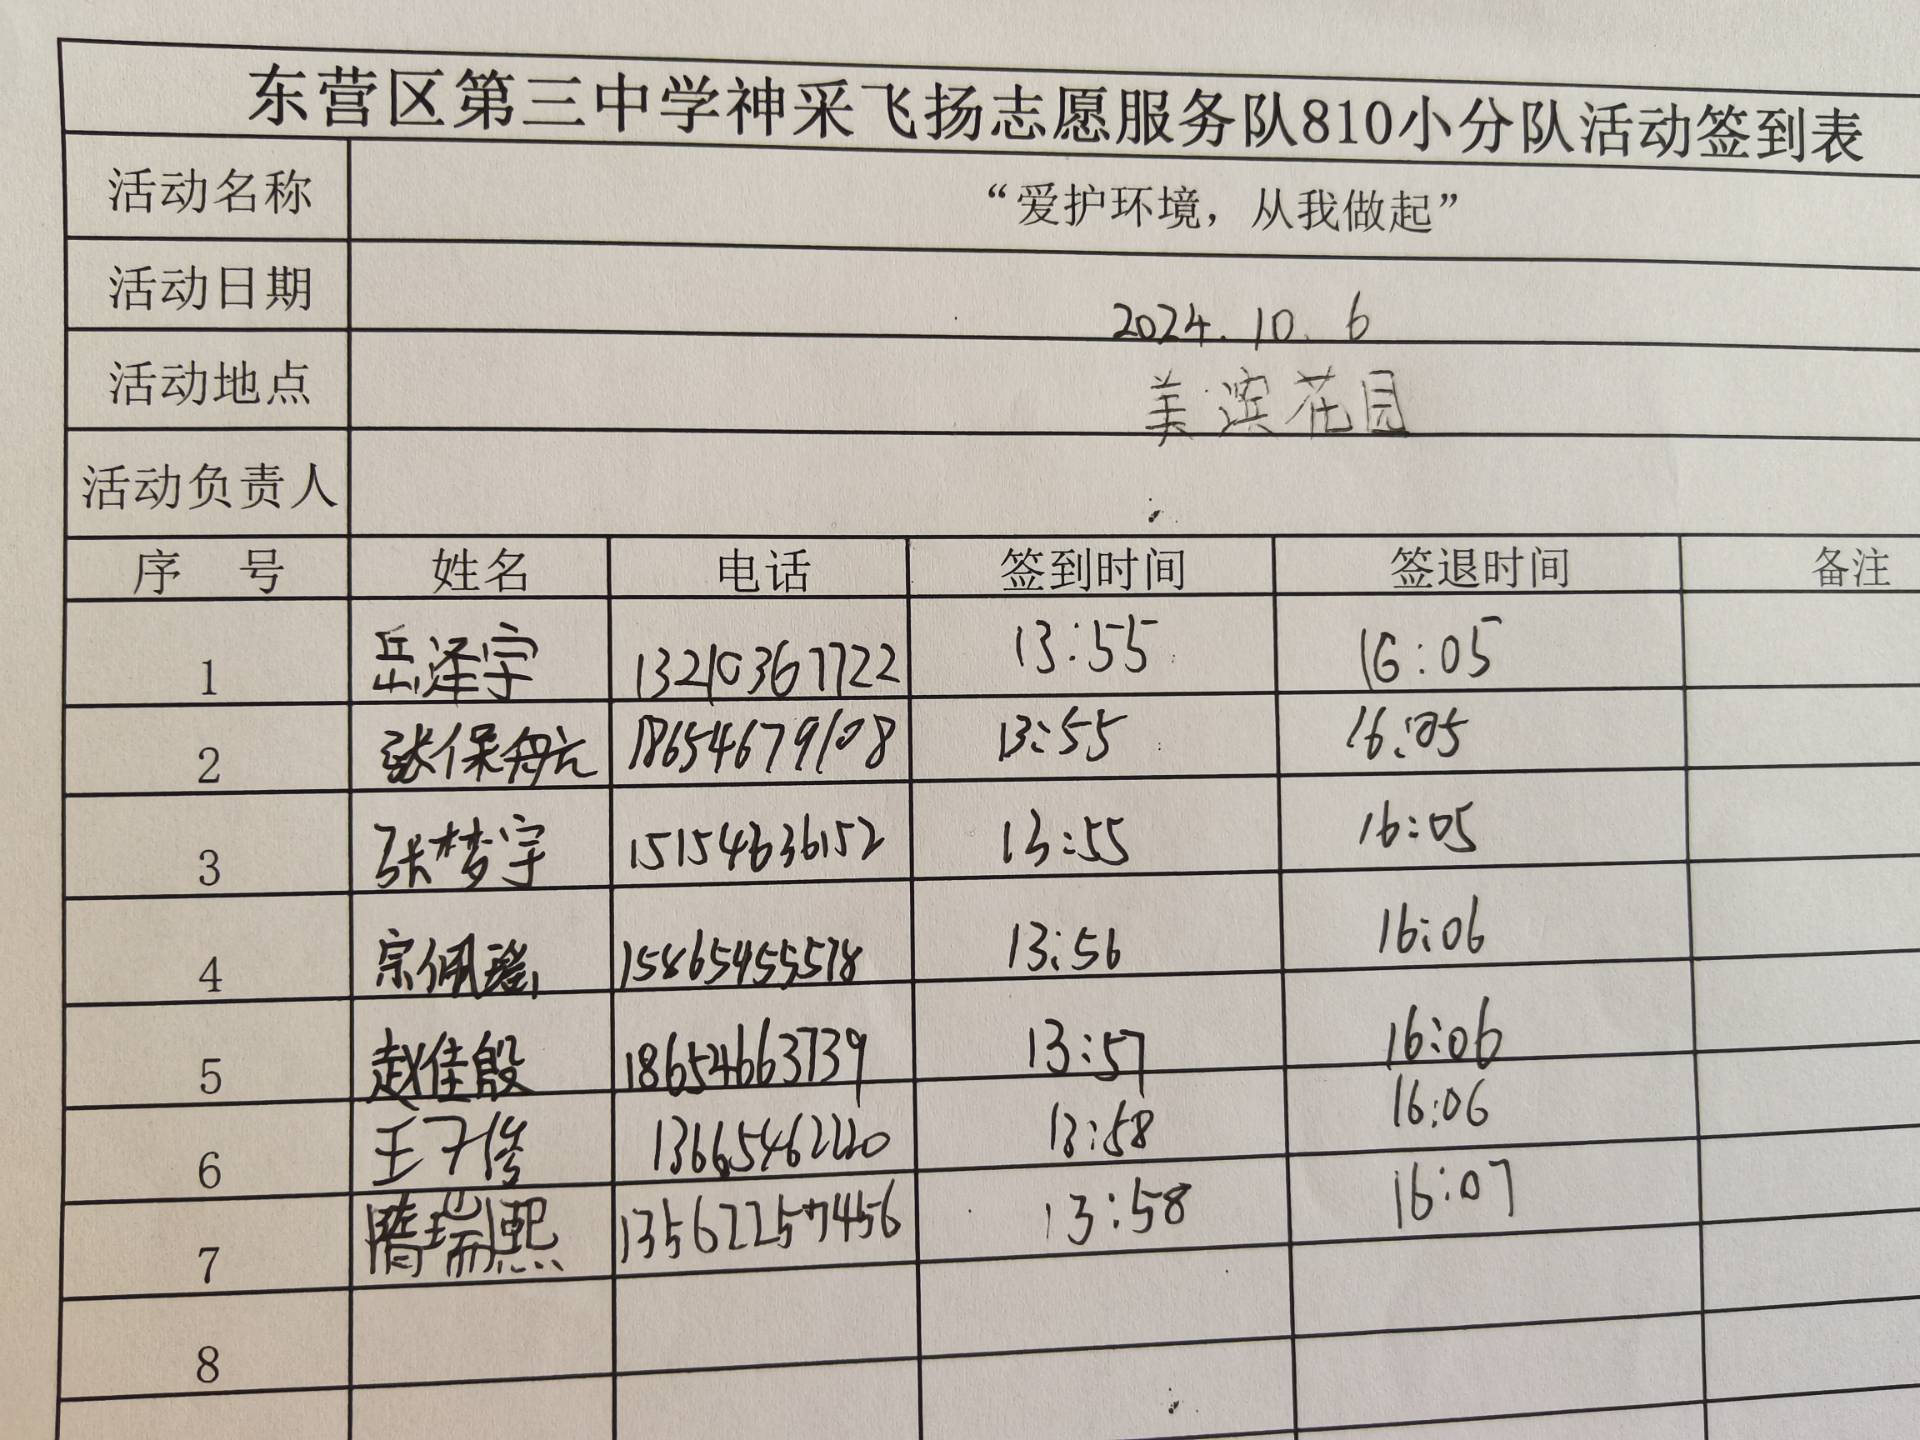 东营区第三中学神采飞扬志愿服务队810小分队活动签到表
活动名称 “爱护环境，从我做起”
活动日期 2024.10.6
活动地点 美滨花园
活动负责人
序 号 姓名 电话 签到时间 签退时间 备注
1 岳泽宇 13210367722 13:55 16:05
2 张保航 18654679108 13:55 16:05
3 张梦宇 15154636152 13:55 16:05
4 宗佩 15865455578 13:56 16:06
5 赵佳殷 18654663739 13:57 16:06
6 王子俊 13665462220 13:58 16:06
7 隋瑞熙 13562257456 13:58 16:07
8